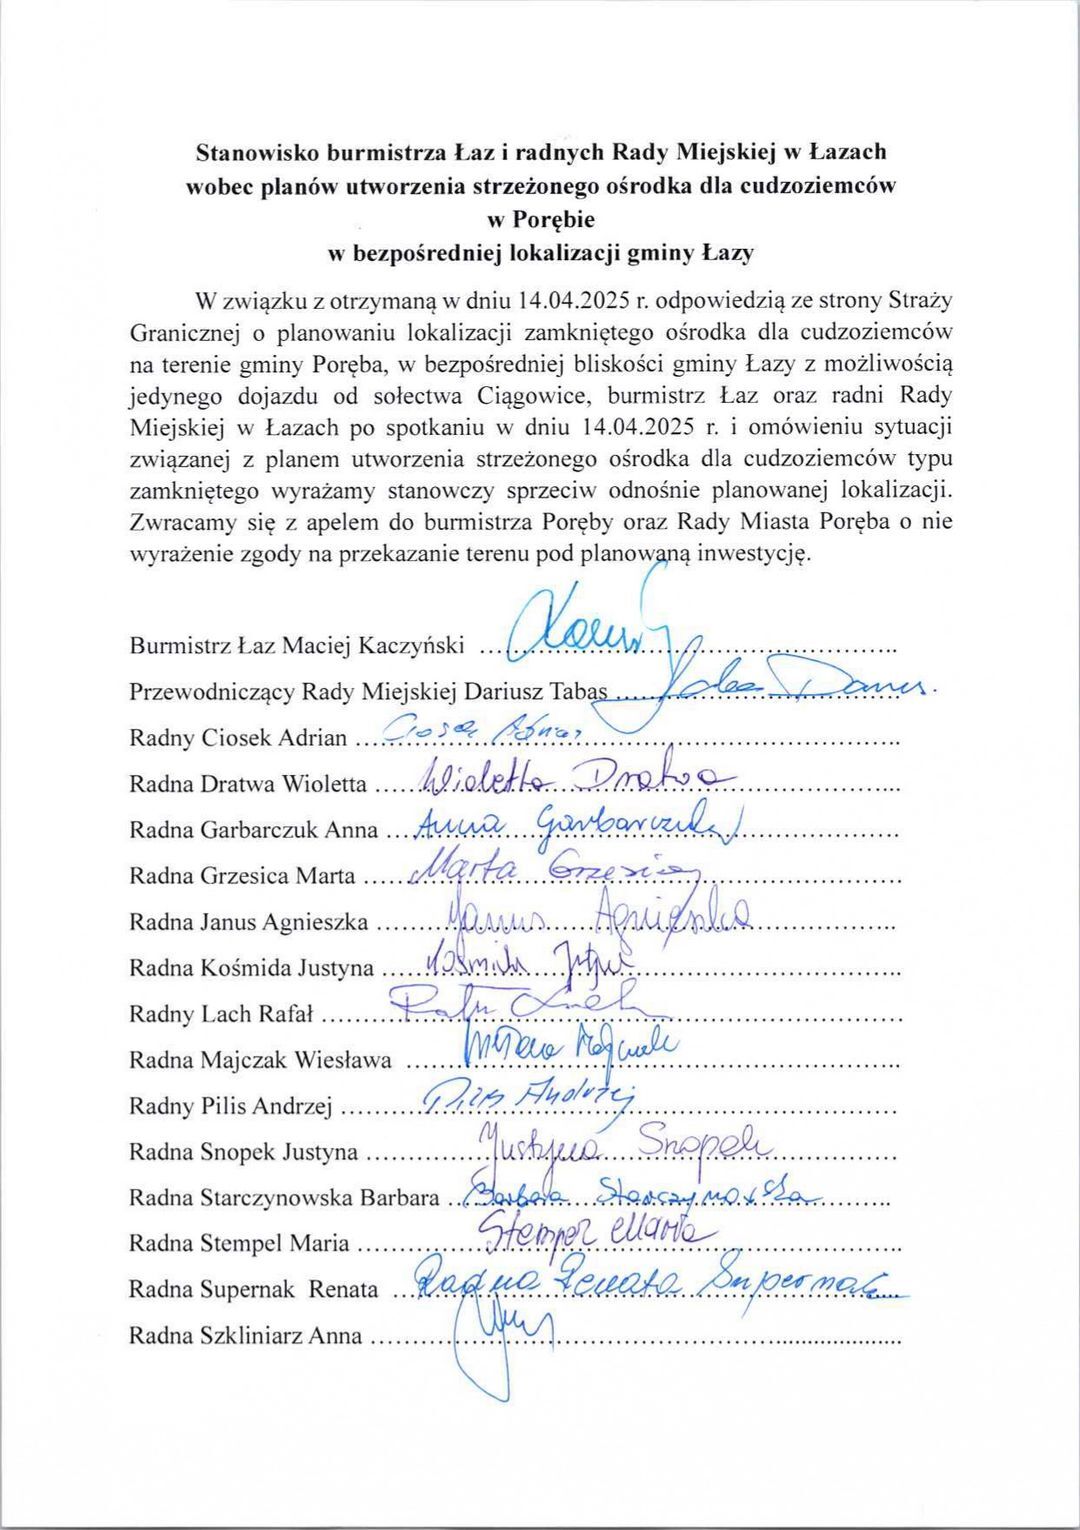 Stanowisko burmistrza Łaz i radnych Rady Miejskiej w Łazach
wobec planów utworzenia strzeżonego ośrodka dla cudzoziemców
w Porębie
w bezpośredniej lokalizacji gminy Łazy
W związku z otrzymaną w dniu 14.04.2025 r. odpowiedzią ze strony Straży
Granicznej o planowaniu lokalizacji zamkniętego ośrodka dla cudzoziemców
na terenie gminy Poręba, w bezpośredniej bliskości gminy Łazy z możliwością
jedynego dojazdu od sołectwa Ciągowice, burmistrz Łaz oraz radni Rady
Miejskiej w Łazach po spotkaniu w dniu 14.04.2025 r. i omówieniu sytuacji
związanej z planem utworzenia strzeżonego ośrodka dla cudzoziemców typu
zamkniętego wyrażamy stanowczy sprzeciw odnośnie planowanej lokalizacji.
Zwracamy się z apelem do burmistrza Poręby oraz Rady Miasta Poręba o nie
wyrażenie zgody na przekazanie terenu pod planowaną inwestycję.
Burmistrz Łaz Maciej Kaczyński
Przewodniczący Rady Miejskiej Dariusz Tabas
Radny Ciosek Adrian Ciosek Adrian
Radna Dratwa Wioletta Wioletta Dratwa
Radna Garbarczuk Anna Anna Garbarczuk
Radna Grzesica Marta Marta Grzesica
Radna Janus Agnieszka Janus Agnieszka
Radna Kośmida Justyna Kośmida
Radny Lach Rafał Rafał Lach
Radna Majczak Wiesława
Radny Pilis Andrzej Pilis Andrzej
Radna Snopek Justyna Justyna Snopek
Radna Starczynowska Barbara Barbara Starczynowska
Radna Stempel Maria Stempel Maria
Radna Supernak Renata Radna Renata Supernak
Radna Szkliniarz Anna